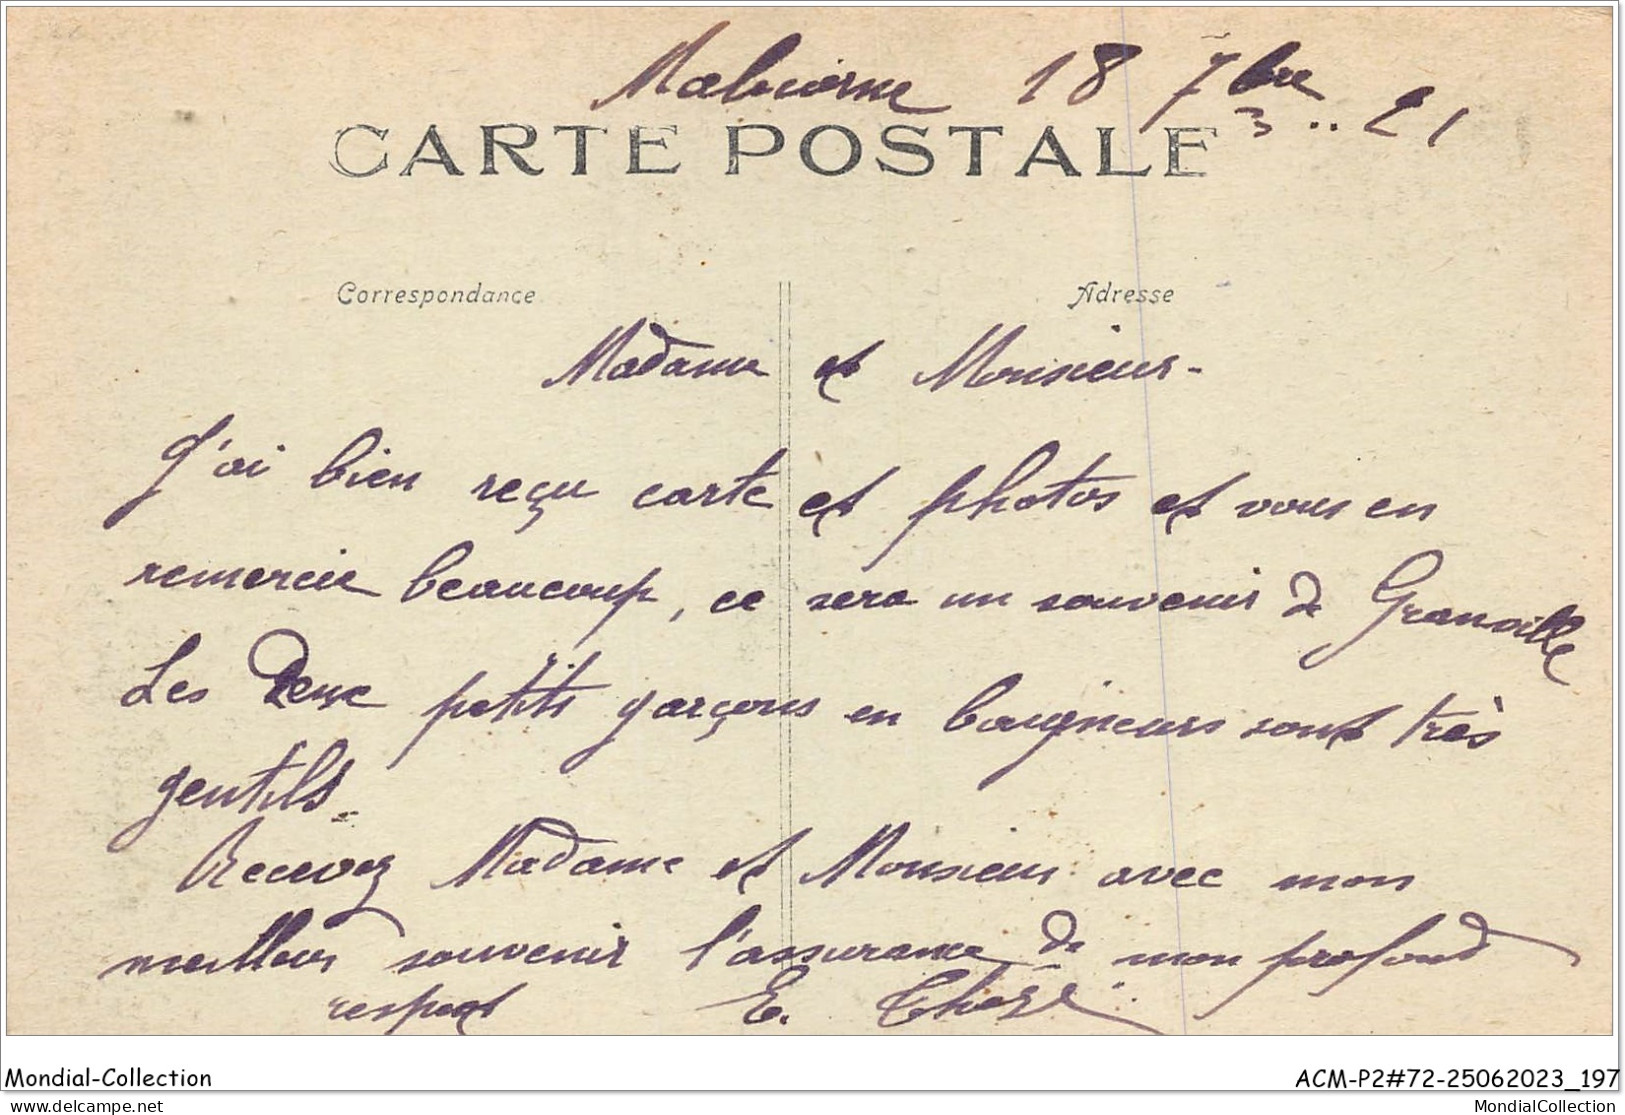 18 7bre 21
CARTE POSTALE
Correspondance
Adresse
Madame et Monsieur -
J'ai bien reçu carte et photos et vous en
remercie beaucoup, ce sera un souvenir de Granville
Les Deux petits garçons en baigneurs sont très
gentils.
Recevez Madame et Monsieur avec mon
meilleur souvenir l'assurance de mon profond
respect E.
Mondial-Collection
ACM-P2#72-25062023_197
www.delcampe.net
MondialCollection